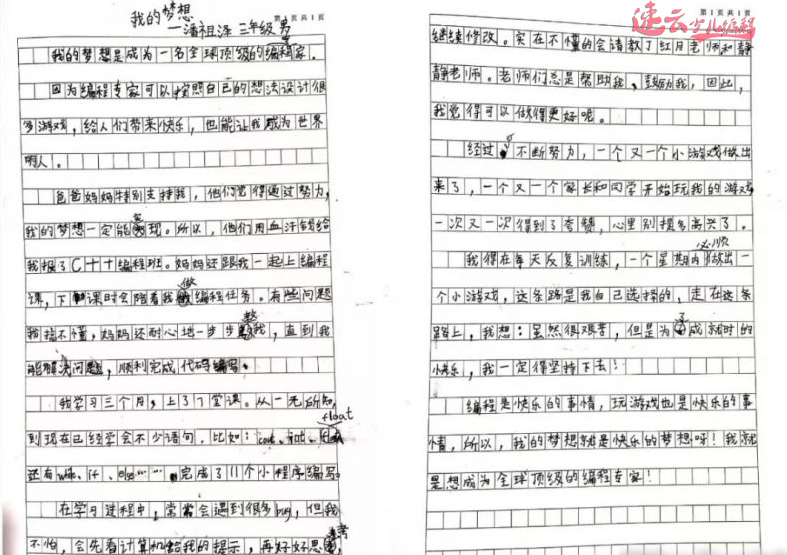 我的梦想
第1页共1页
一潘祖泽 三年级 男
我的梦想是成为一名全球顶级的编程家。
因为编程专家可以按照自己的想法设计很
多游戏,给人们带来快乐,也能让我成为世界
明人。
爸爸妈妈特别支持我,他们觉得通过努力,
我的梦想一定能实现。所以,他们用血汗钱给
我报了C++编程班。妈妈还跟我一起上编程
课,下课时会陪着我做编程任务。有些问题
我搞不懂,妈妈还耐心地一步步教我,直到我
能解决问题,顺利完成代码编写。
我学习三个月,上了7堂课。从一无所知,
到现在已经学会不少语句,比如:cout、int、float
还有while、if、else……完成了11个小程序编写。
在学习过程中,常常会遇到很多bug,但我
不怕,会先看计算机给我的提示,再好好思考,
速云少儿编程
第1页共1页
继续修改。实在不懂的会请教了红月老师和静
静老师。老师们总是帮助我、鼓励我,因此,
我觉得可以做得更好呢。
经过不断努力,一个又一个小游戏做出
来了,一个又一个家长和同学开始玩我的游戏
一次又一次得到了夸赞,心里别提多高兴了。
我得在每天反复训练,一个星期内必须做出一
个小游戏,这条路是我自己选择的,走在这条
路上,我想:虽然很艰苦,但是为了成就时的
快乐,我一定得坚持下去!
编程是快乐的事情,玩游戏也是快乐的事
情,所以,我的梦想就是快乐的梦想呀!我就
是想成为全球顶级的编程专家!